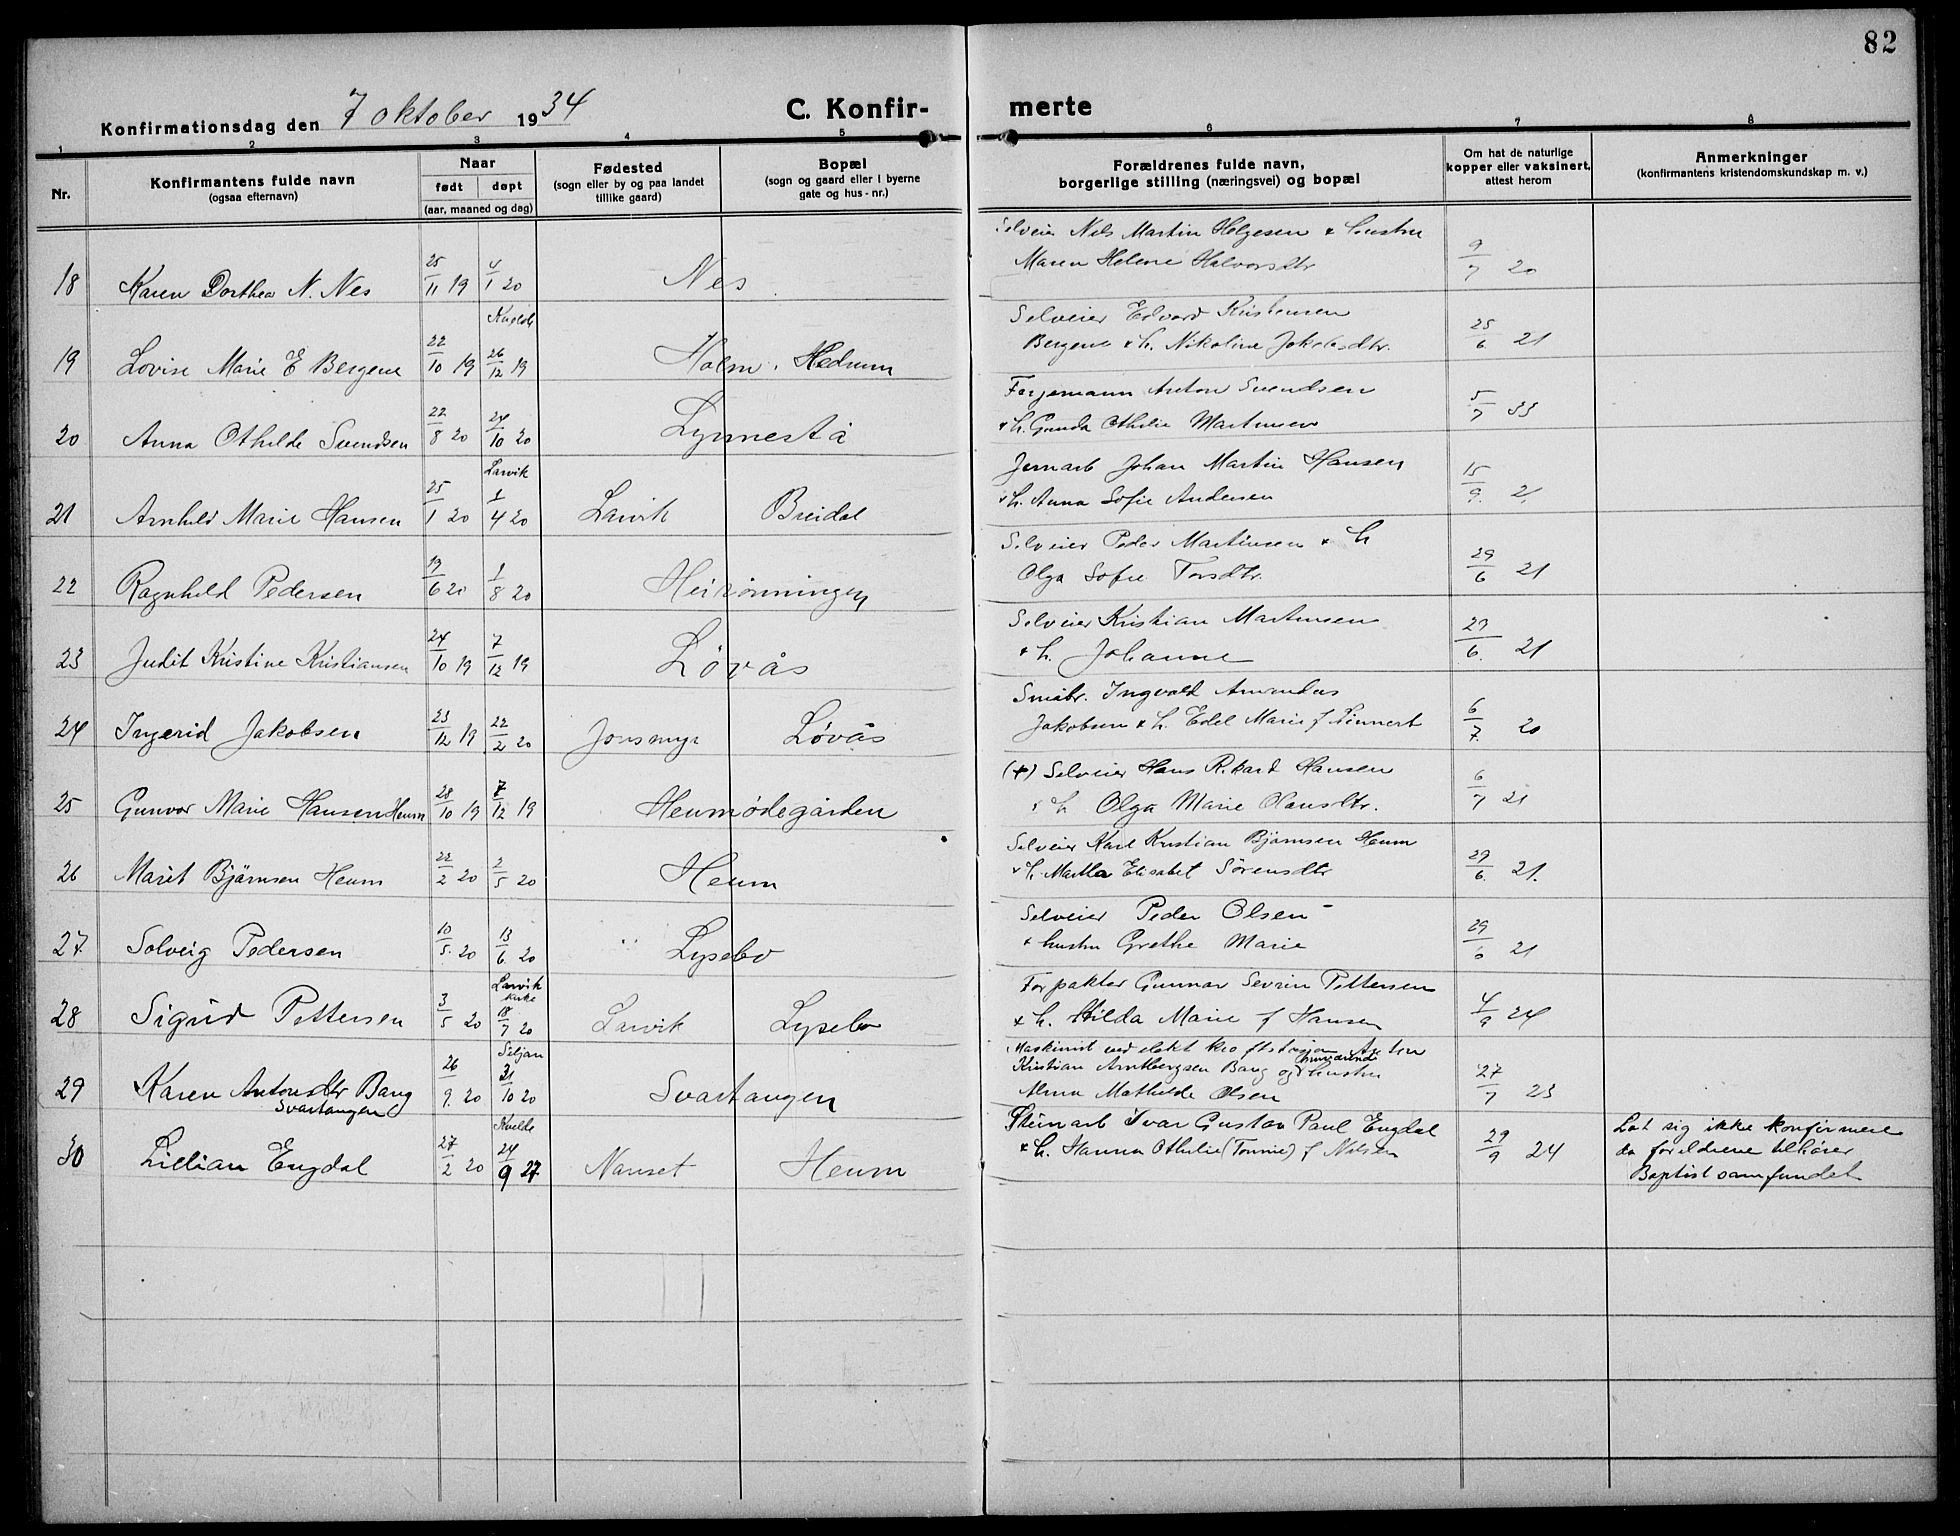 82
Konfirmationsdag den 7 oktober 1934
C. Konfir- merte
1 2 3 4 5 6 7 8
Nr.
Konfirmantens fulde navn
(ogsaa efternavn)
Naar
født døpt
(aar, maaned og dag)
Fødested
(sogn eller by og paa landet
tillike gaard)
Bopæl
(sogn og gaard eller i byerne
gate og hus-nr.)
Forældrenes fulde navn,
borgerlige stilling (næringsvei) og bopæl
Om hat de naturlige
kopper eller vaksinert,
attest herom
Anmerkninger
(konfirmantens kristendomskundskap m. v.)
18 Karen Dorthea N. Nes 25/11 19 4/1 20 Nes
Selveier Nils Martin Helgesen & hustru
Maren Helene Halvorsdtr 9/7 20
Kvelde
19 Lovise Marie E Bergene 22/10 19 26/12 19 Holm, Hedrum
Selveier Edvard Kristensen
Bergene & h. Nikoline Jakobsdtr. 25/6 21
20 Anna Othilde Svendsen 22/8 20 24/10 20 Lynnestå
Ferjemann Anton Svendsen
& h. Gunda Othilie Martinsen 5/7 33
Larvik
21 Arnhild Marie Hansen 25/1 20 1/4 20 Larvik Breidal
Jernarb Johan Martin Hansen
& h. Anna Sofie Andersen 15/9. 21
22 Ragnhild Pedersen 19/6 20 1/8 20 Heirønningen
Selveier Peder Martinsen & h
Olga Sofie Torsdtr. 29/6 21
23 Judit Kristine Kristiansen 24/10 19 7/12 19 Løvås
Selveier Kristian Martinsen
& h. Johanne 29/6. 21
24 Ingerid Jakobsen 23/12 19 22/2 20 Jonsmyr Løvås
Småbr. Ingvald Amandus
Jakobsen & h. Edel Marie f 6/7. 20
25 Gunvor Marie Hansen Heum 28/10 19 7/12 19 Heumødegården
(+) Selveier Hans Rikard Hansen
& h Olga Marie Olausdtr. 6/7 21
26 Marit Bjørnsen Heum 22/2 20 2/5 20 Heum
Selveier Karl Kristian Bjørnsen Heum
& h. Martha Elisabet Sørensdtr 29/6. 21.
27 Solveig Pedersen 10/5. 20 13/6. 20 " Lysebo
Selveier Peder Olsen
& hustru Grethe Marie 29/6 21
Larvik
kirke
28 Sigrid Pettersen 3/5 20 18/7 20 Larvik Lysebo
Forpakter Gunnar Sevrin Pettersen
& h. Hilda Marie f Hansen 4/9 24
Siljan
29 Karen Antonsdtr Bang 26/9. 20 31/10 20 Svartangen
Svartangen
Maskinist ved elekt kraftstasjon Anton
Kristian Arntbergsen Bang og hustru
Alma Mathilde Olsen 27/7 23
Kvelde
30 Lillian Engdal 27/2 20 24/9 27 Nanset Heum
Stenarb Ivar Gustav Paul Engdal
& h. Hanna Othilie (Tomine) f Nilsen 29/9 24
Lot sig ikke konfirmere
da foreldrene tilhører
Baptistsamfundet